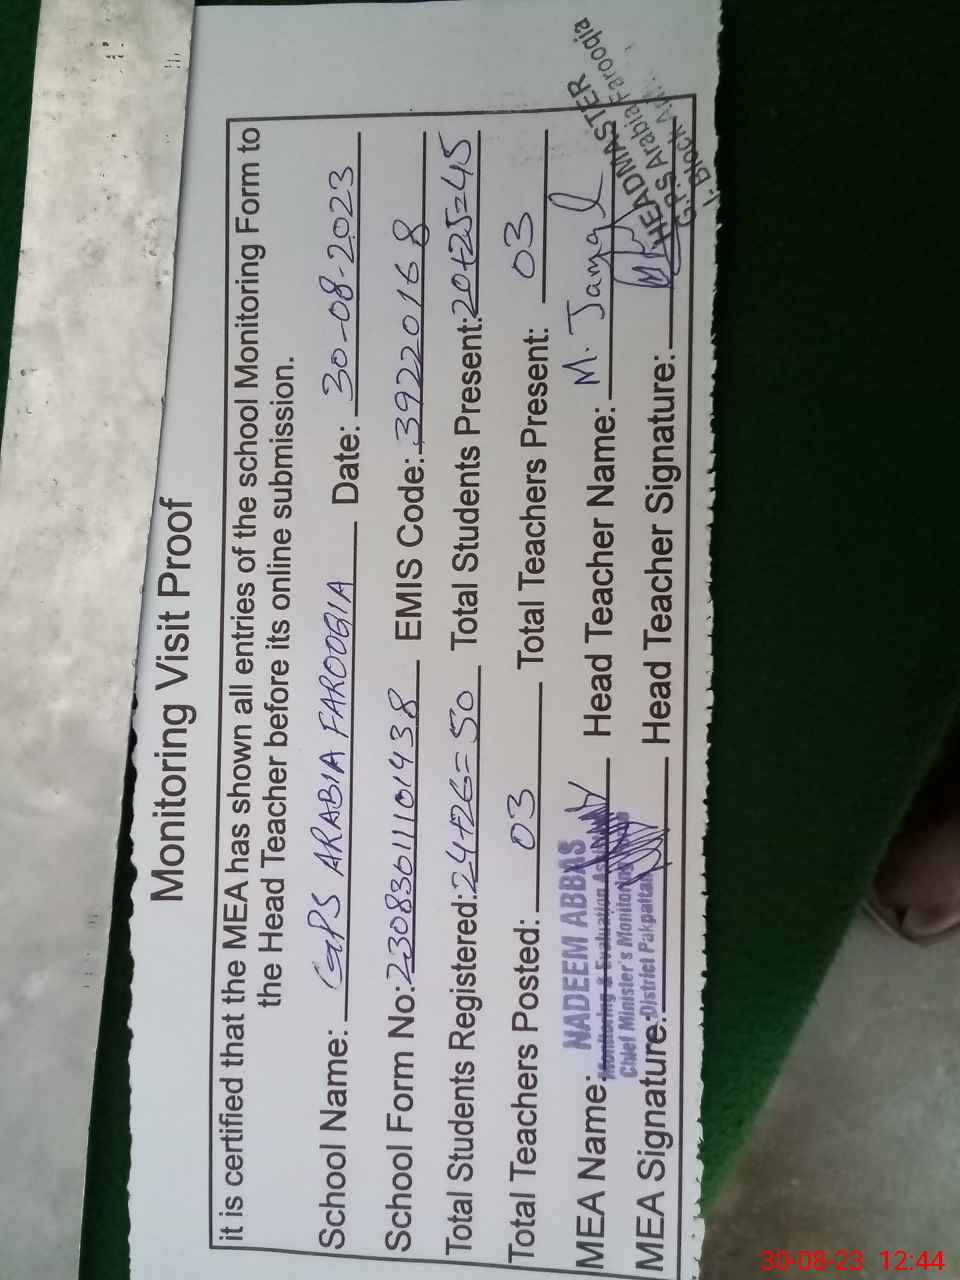 Monitoring Visit Proof
it is certified that the MEA has shown all entries of the school Monitoring Form to
the Head Teacher before its online submission.
School Name: GPS ARABIA FAROOGIA Date: 30-08-2023
School Form No: 230830111101438 EMIS Code: 39220168
Total Students Registered: 24+26=50 Total Students Present: 20+25=45
Total Teachers Posted: 03 Total Teachers Present: 03
MEA Name: NADEEM ABBAS Head Teacher Name: M. Jamal
Monitoring & Evaluation
Chief Minister's Monitoring
MEA Signature: District Pakpattan Head Teacher Signature:
HEADMASTER
G.P.S Arabia Farooqia
Block
30-08-23 12:44